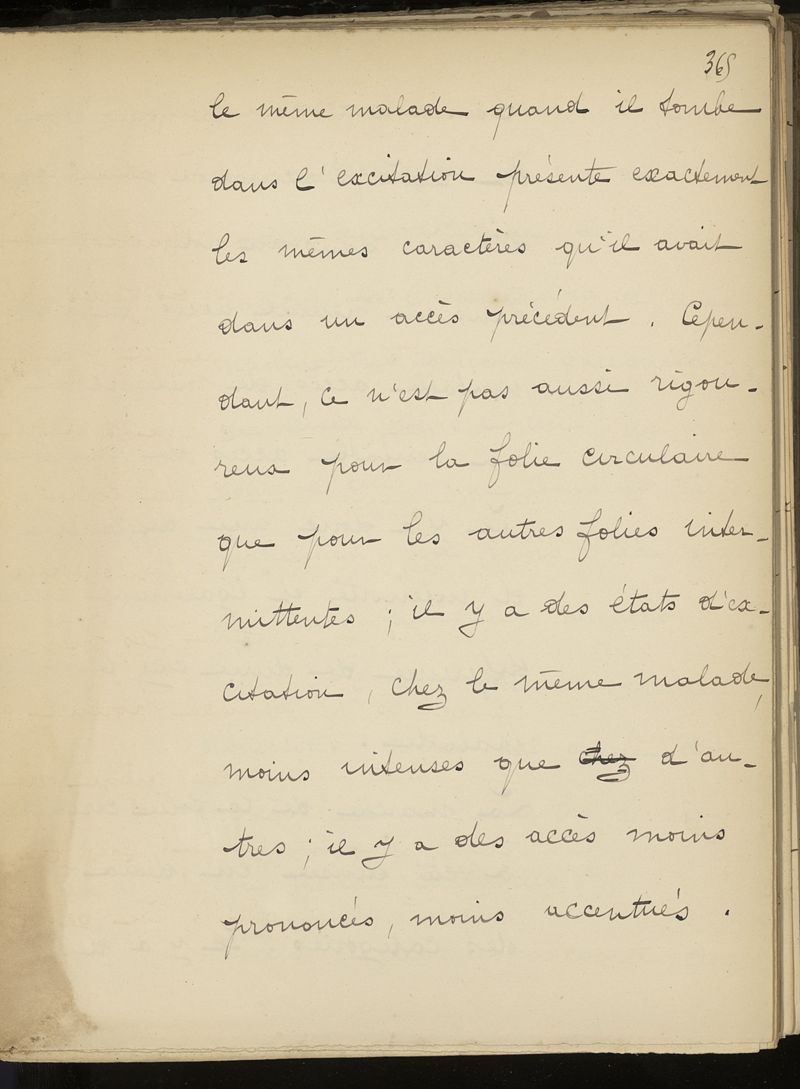 365
le même malade quand il tombe
dans l'excitation présente exactement
les mêmes caractères qu'il avait
dans un accès précédent. Cepen-
dant, ce n'est pas aussi rigou-
reux pour la folie circulaire
que pour les autres folies inter-
mittentes ; il y a des états d'ex-
citation, chez le même malade,
moins intenses que chez d'au-
tres ; il y a des accès moins
prononcés, moins accentués.